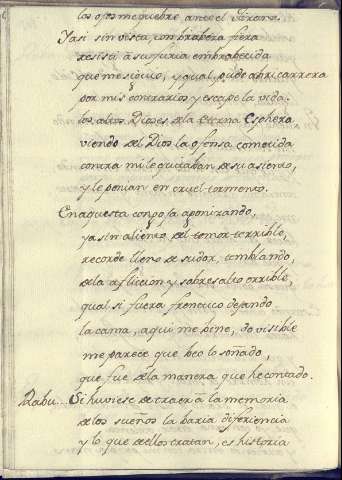 los ojos me quebré ante el tirano.
Y asi sin vista, con brabeza fiera
resisti à su furia embrabecida
que me siguio, y qual pude abri carrera
por mis contrarios y escape la vida.
los altos Dioses de la eterna Esphera
viendo del Dios la ofensa cometida
contra mi le quitaban de su asiento,
y le ponian en cruel tormento.
En aquesta congoja agonizando,
ya sin aliento del temor terrible,
recorde lleno de sudor, temblando,
de la afliccion y sobresalto orrible,
qual si fuera frenetico dejando
la cama, aqui me vine, do visible
me parece que beo lo soñado,
que fue de la manera que he contado.
Rabu. Si huviese de traer à la memoria
de los sueños la baria diferiencia
y lo que de ellos tratan, es historia